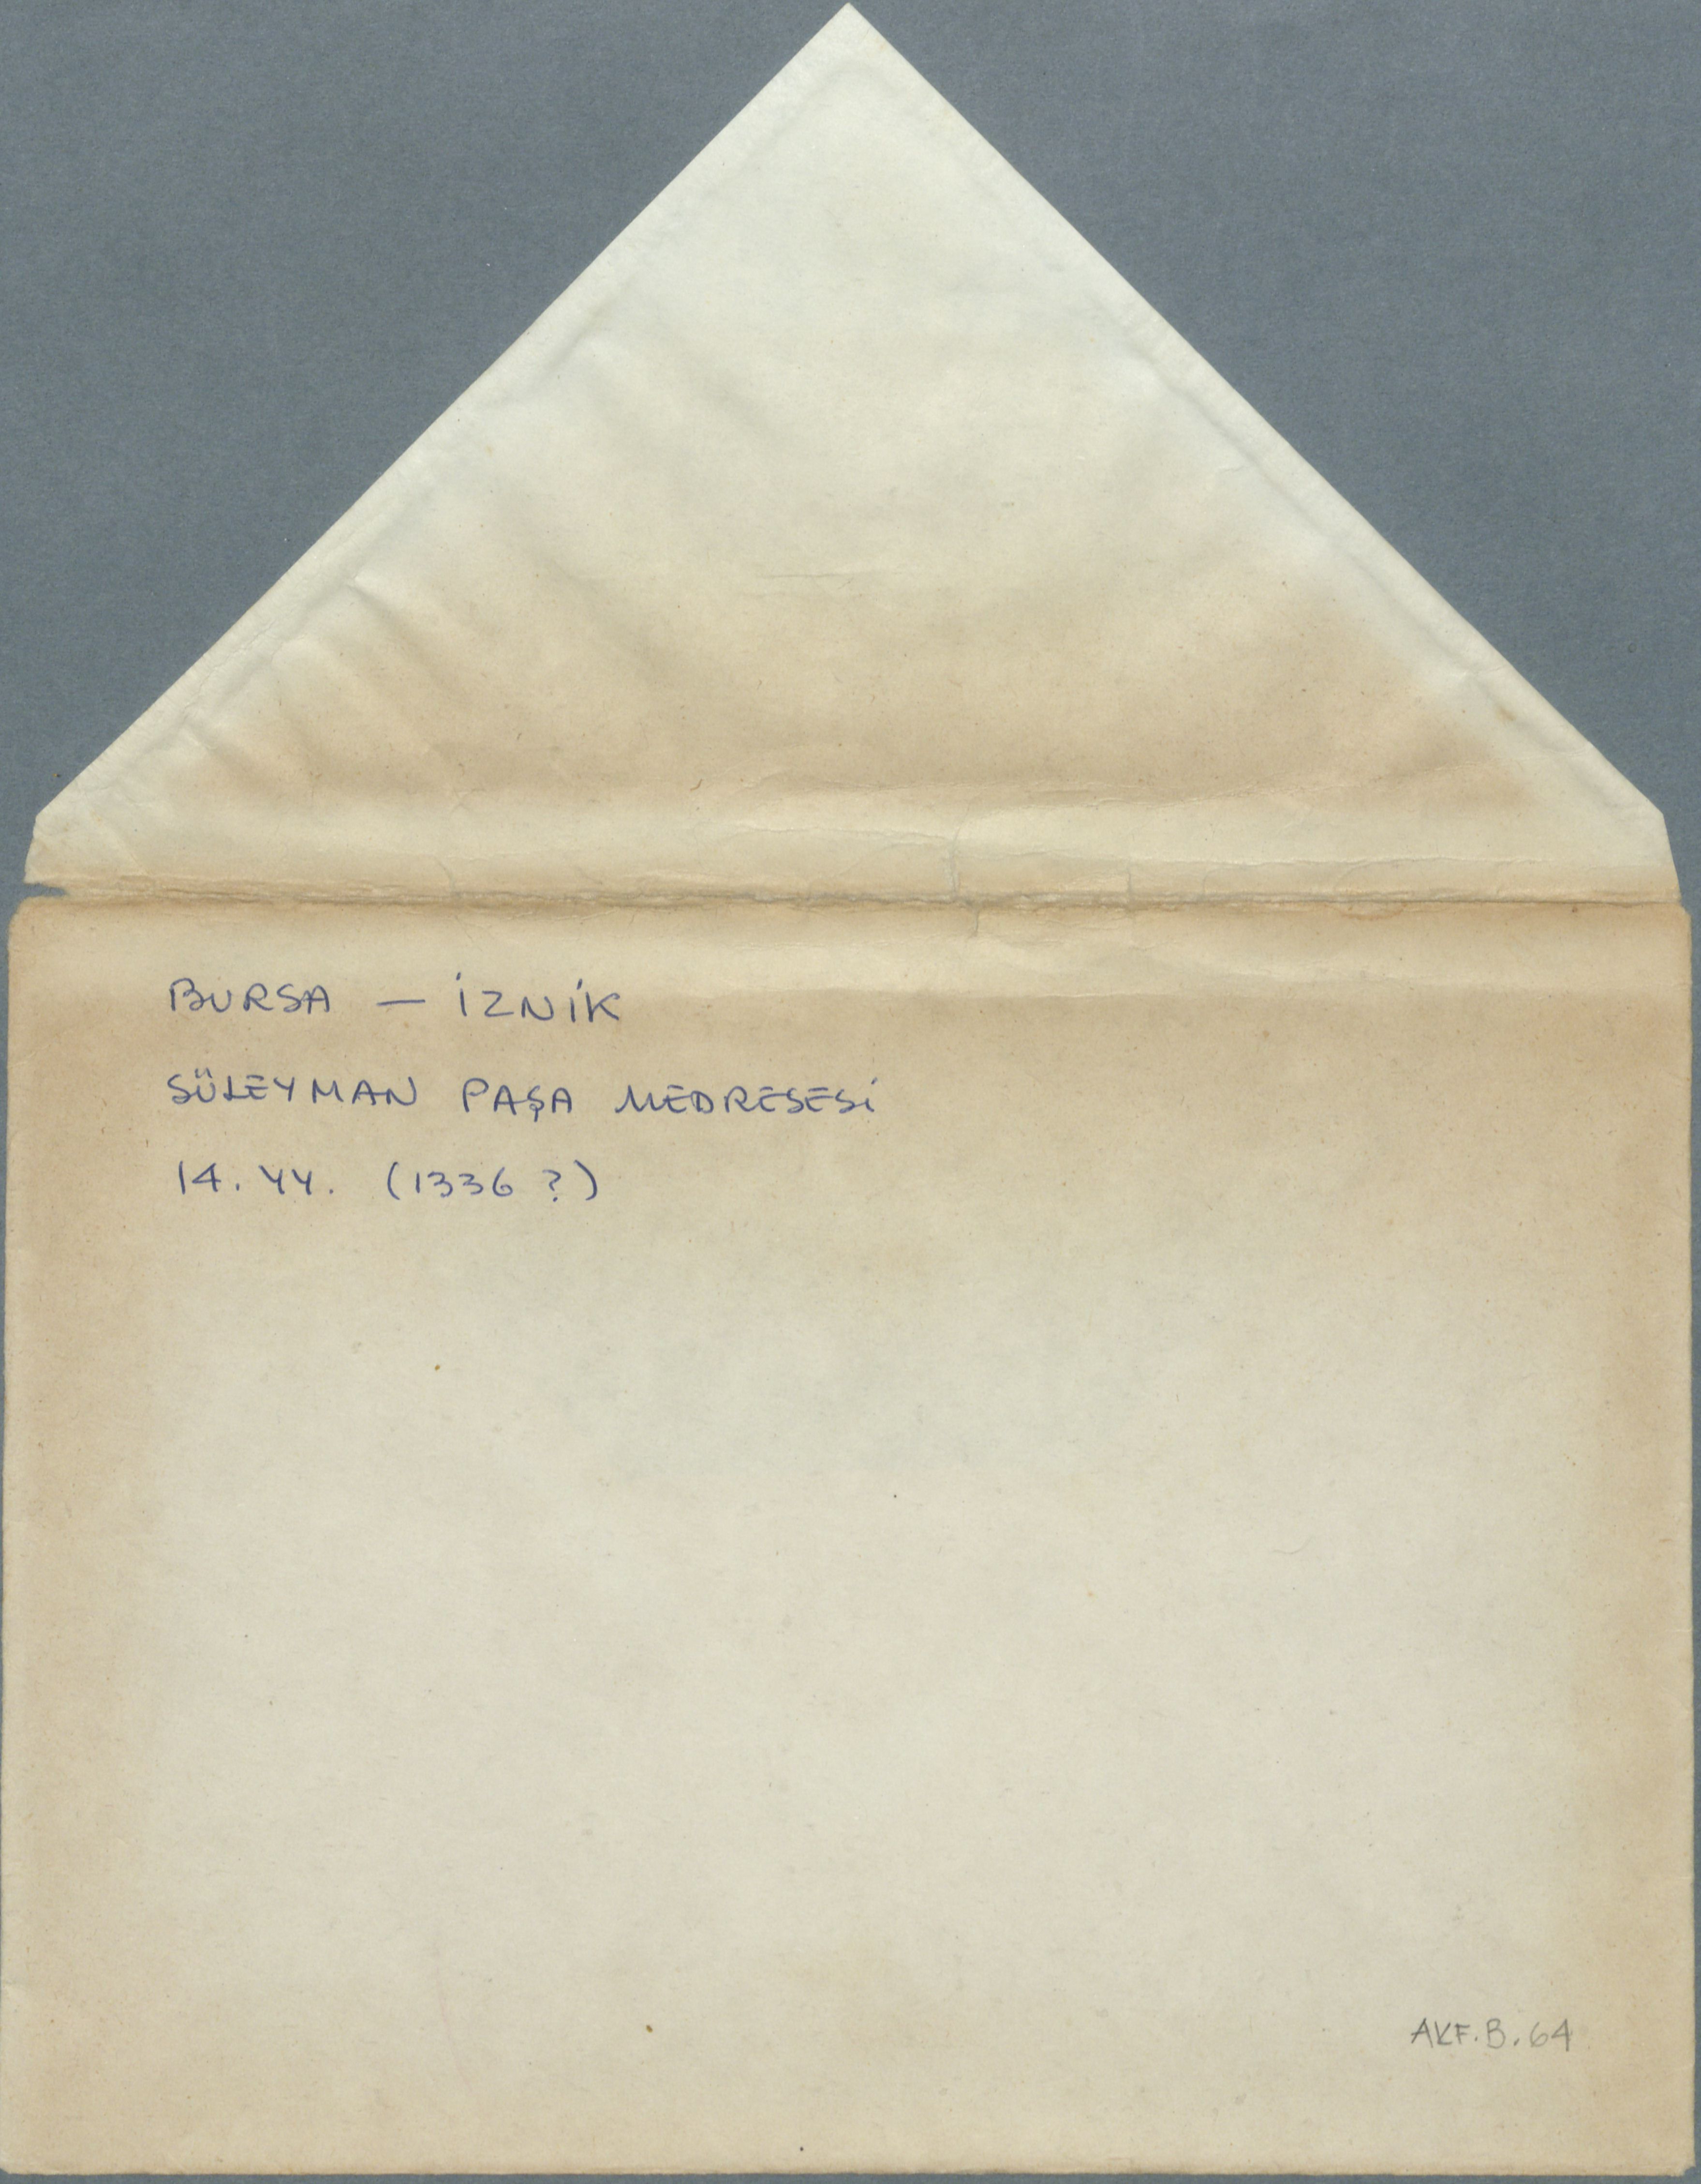 BURSA — İZNİK
SÜLEYMAN PAŞA MEDRESESİ
14. YY. (1336 ?)
AKF.B.64